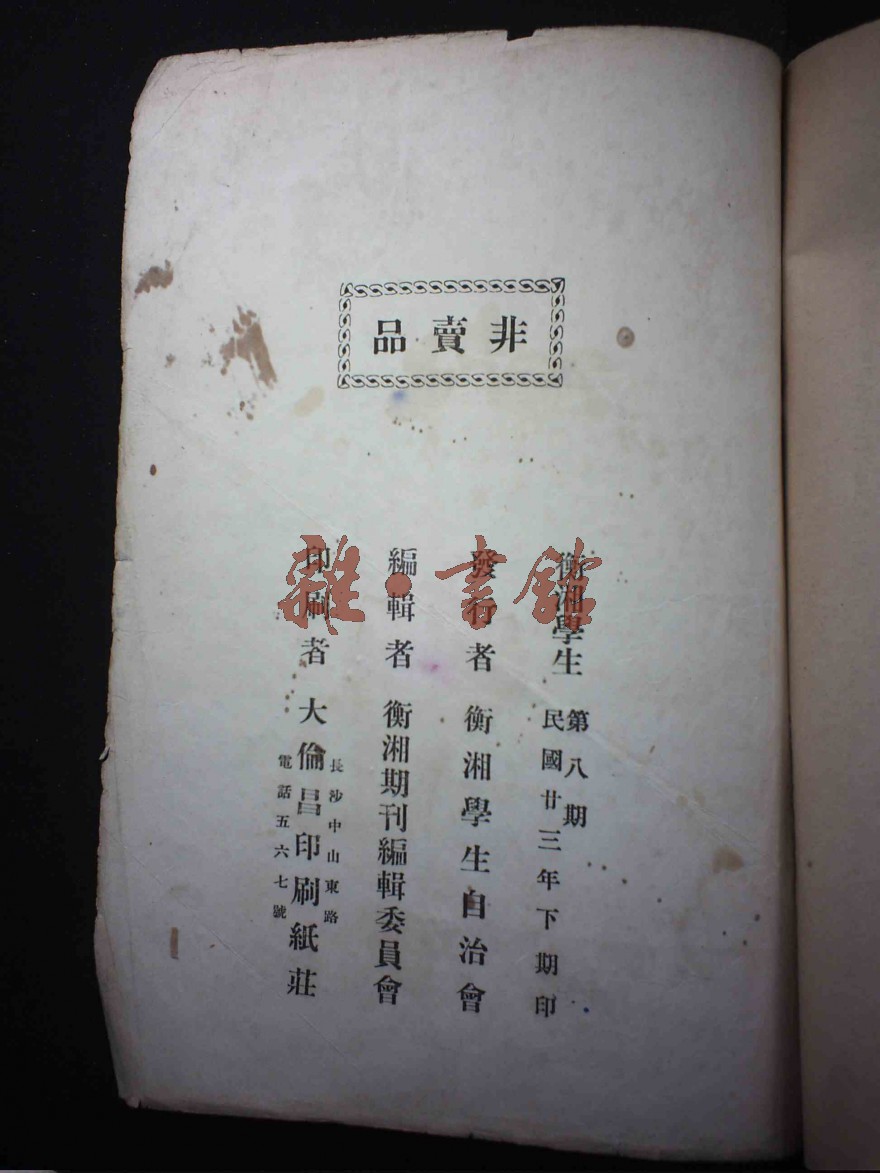 非賣品
衡湘學生
第八期
民國廿三年下期印
發行者 衡湘學生自治會
編輯者 衡湘期刊編輯委員會
印刷者 大倫昌印刷紙莊
長沙中山東路
電話五六七號
雜·書館